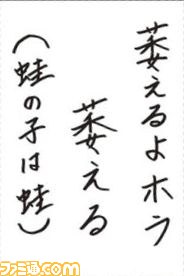 萎えるよホラ
萎える
(蛙の子は蛙)
ファミ通.com